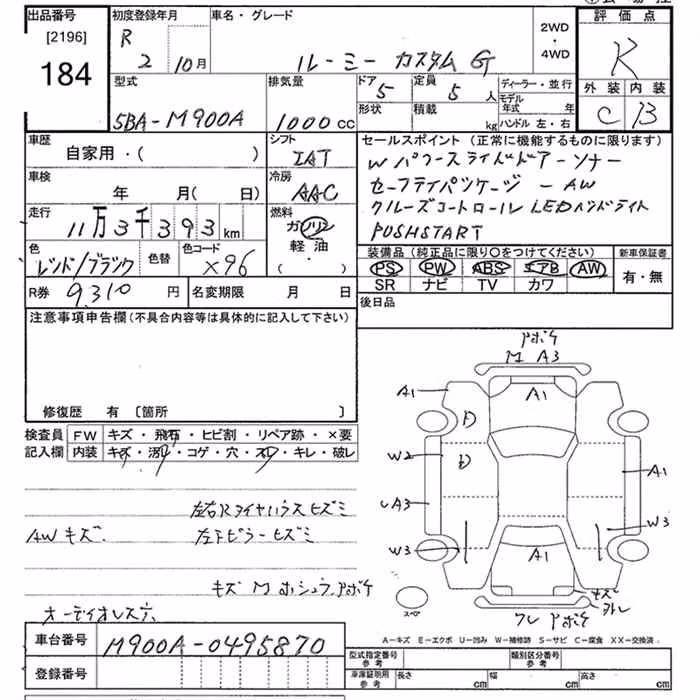 出品番号
[2196]
184
初度登録年月
R 2 10月
車名・グレード
ルーミー カスタム G
2WD
・
4WD
評価点
R
外装 内装
C B
型式
5BA-M900A
排気量
1000cc
ドア
5
定員
5人
形状
積載
kg
ディーラー・並行
モデル年式 年
ハンドル 左・右
車歴
自家用・( )
シフト
IAT
車検
年 月( 日)
冷房
AAC
走行
11万3千393km
燃料
ガソリン
軽油
( ・ )
色
レッド/ブラック
色替
色コード
X96
R券 9,310円
名変期限 月 日
セールスポイント(正常に機能するものに限ります)
Wパワースライドドアーソナー
セーフティパッケージ - AW
クルーズコントロール LEDヘッドライト
PUSHSTART
装備品(純正品に限り○をつけてください)
PS PW ABS エアB AW
SR ナビ TV カワ
新車保証書
有・無
後日品
注意事項申告欄(不具合内容等は具体的に記入して下さい)
修復歴 有〔箇所 〕
検査員記入欄
FW キズ・飛石・ヒビ割・リペア跡・×要
内装 キズ・汚レ・コゲ・穴・スレ・キレ・破レ
左右Rタイヤハウスヒズミ
AWキズ.
キズ M ホシュウ.アポケ
オーディオレス
アポケ
M A3
A1
A1
W2
A3
W3
A1
W3
A1
キズ
スペア
アポケ
A-キズ E-エクボ U-凹み W-補修跡 S-サビ C-腐食 XX-交換済
車台番号
M900A-0495870
登録番号
型式指定番号
参考
類別区分番号
参考
車庫証明用
参考
長さ cm
幅 cm
高さ cm